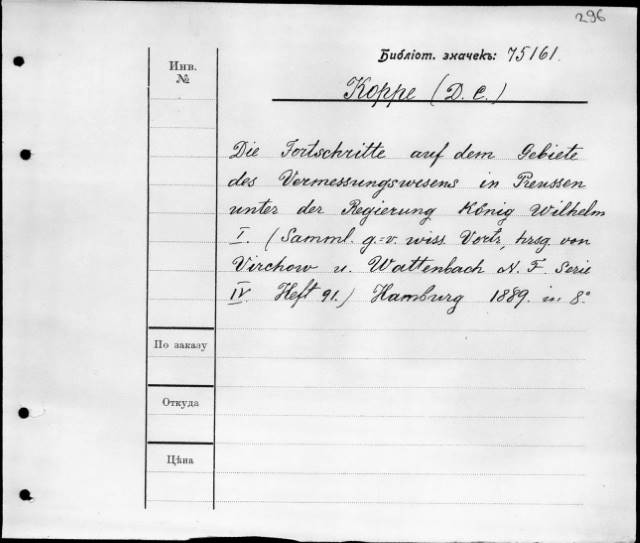 296
Библіот. значекъ: 75161.
Инв.
№
Koppe (D. C.)
Die Fortschritte auf dem Gebiete
des Vermessungswesens in Preussen
unter der Regierung König Wilhelm
I. (Samml. g.=v. wiss. Vortr, hrsg. von
Virchow u. Wattenbach N. F. Serie
IV Heft 91.) Hamburg 1889. in 8.º
По заказу
Откуда
Цѣна